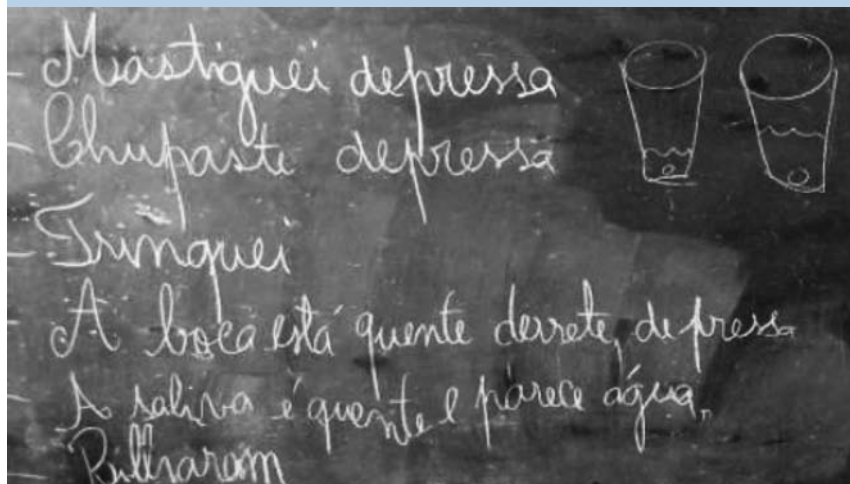 - Mastiguei depressa
- Chupaste depressa
- Trinquei
- A boca está quente derrete, depressa
- A saliva é quente e parece água.
- Rilharam